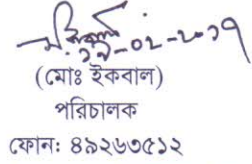 ১৯-০২-২০১৭
(মোঃ ইকবাল)
পরিচালক
ফোন: ৪৯২৬৩৫১২